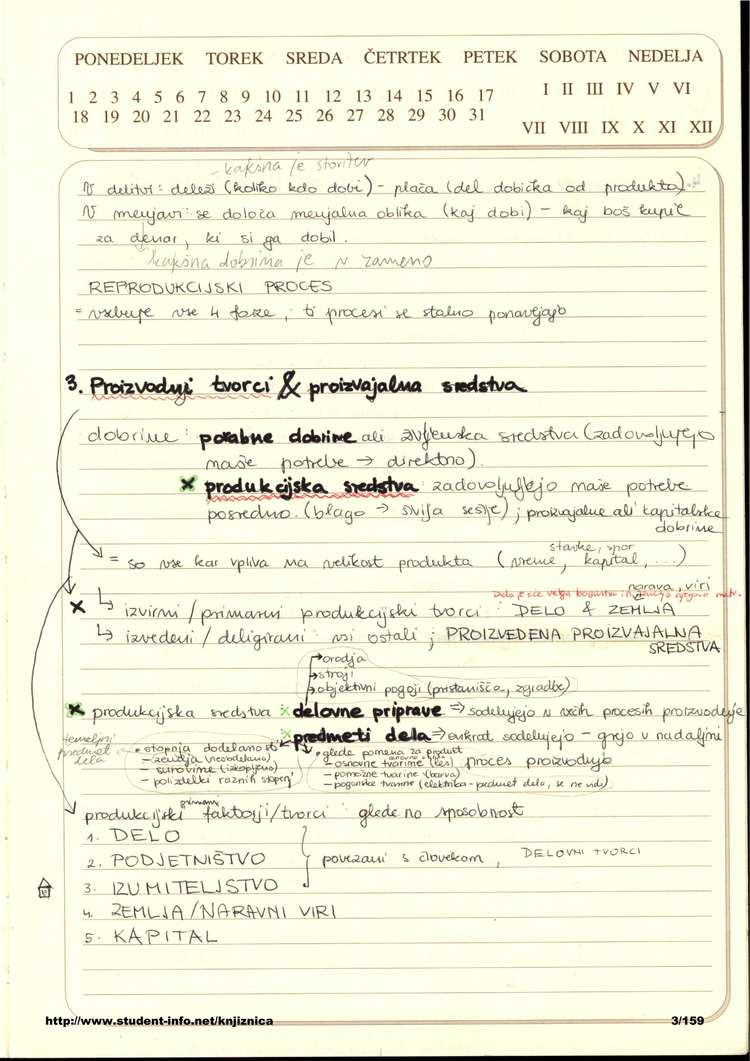 PONEDELJEK TOREK SREDA ČETRTEK PETEK SOBOTA NEDELJA
1 2 3 4 5 6 7 8 9 10 11 12 13 14 15 16 17
18 19 20 21 22 23 24 25 26 27 28 29 30 31
I II III IV V VI
VII VIII IX X XI XII
- kakšna je storitev
V delitvi: delež (koliko kdo dobi) - plača (del dobička od produkta)
V menjavi: se določa menjalna oblika (kaj dobi) - kaj boš kupil
za denar, ki si ga dobil.
kakšna dobrina je v zameno
REPRODUKCIJSKI PROCES
= vsebuje vse 4 faze, ti procesi se stalno ponavljajo
3. Proizvodnji tvorci & proizvajalna sredstva
dobrine: porabne dobrine ali življenska sredstva (zadovoljujejo
naše potrebe → direktno).
x produkcijska sredstva: zadovoljujejo naše potrebe
posredno. (blago → šivlja sešije); proizvajalne ali kapitalske
dobrine
stavke, spor
= so vse kar vpliva na velikost produkta (vreme, kapital, ...)
narava, viri
Delo je oče vsega bogastva in zemlja njegova mati.
x ↳ izvirni / primarni produkcijski tvorci: DELO & ZEMLJA
↳ izvedeni / deligirani: vsi ostali; PROIZVEDENA PROIZVAJALNA
SREDSTVA
→ orodja
→ stroji
→ objektivni pogoji (pristanišča, zgradbe)
x produkcijska sredstva x delovne priprave ⇒ sodelujejo v večih procesih proizvodnje
x predmeti dela ⇒ enkrat sodelujejo - grejo v nadaljni
proces proizvodnje
temeljni
predmet
dela
• stopnja dodelanosti
- zemlja (neobdelano)
- surovine (izkopljeno)
- polizdelki raznih stopenj
• glede pomena za produkt
- osnovne tvarine (les)
- pomožne tvarine (barva)
- pogonske tvarine (elektrika - predmet dela, se ne vidi)
primarni
produkcijski faktorji/tvorci: glede na sposobnost
1. DELO
2. PODJETNIŠTVO
povezani s človekom, DELOVNI TVORCI
3. IZUMITELJSTVO
4. ZEMLJA/NARAVNI VIRI
5. KAPITAL
http://www.student-info.net/knjiznica
3/159